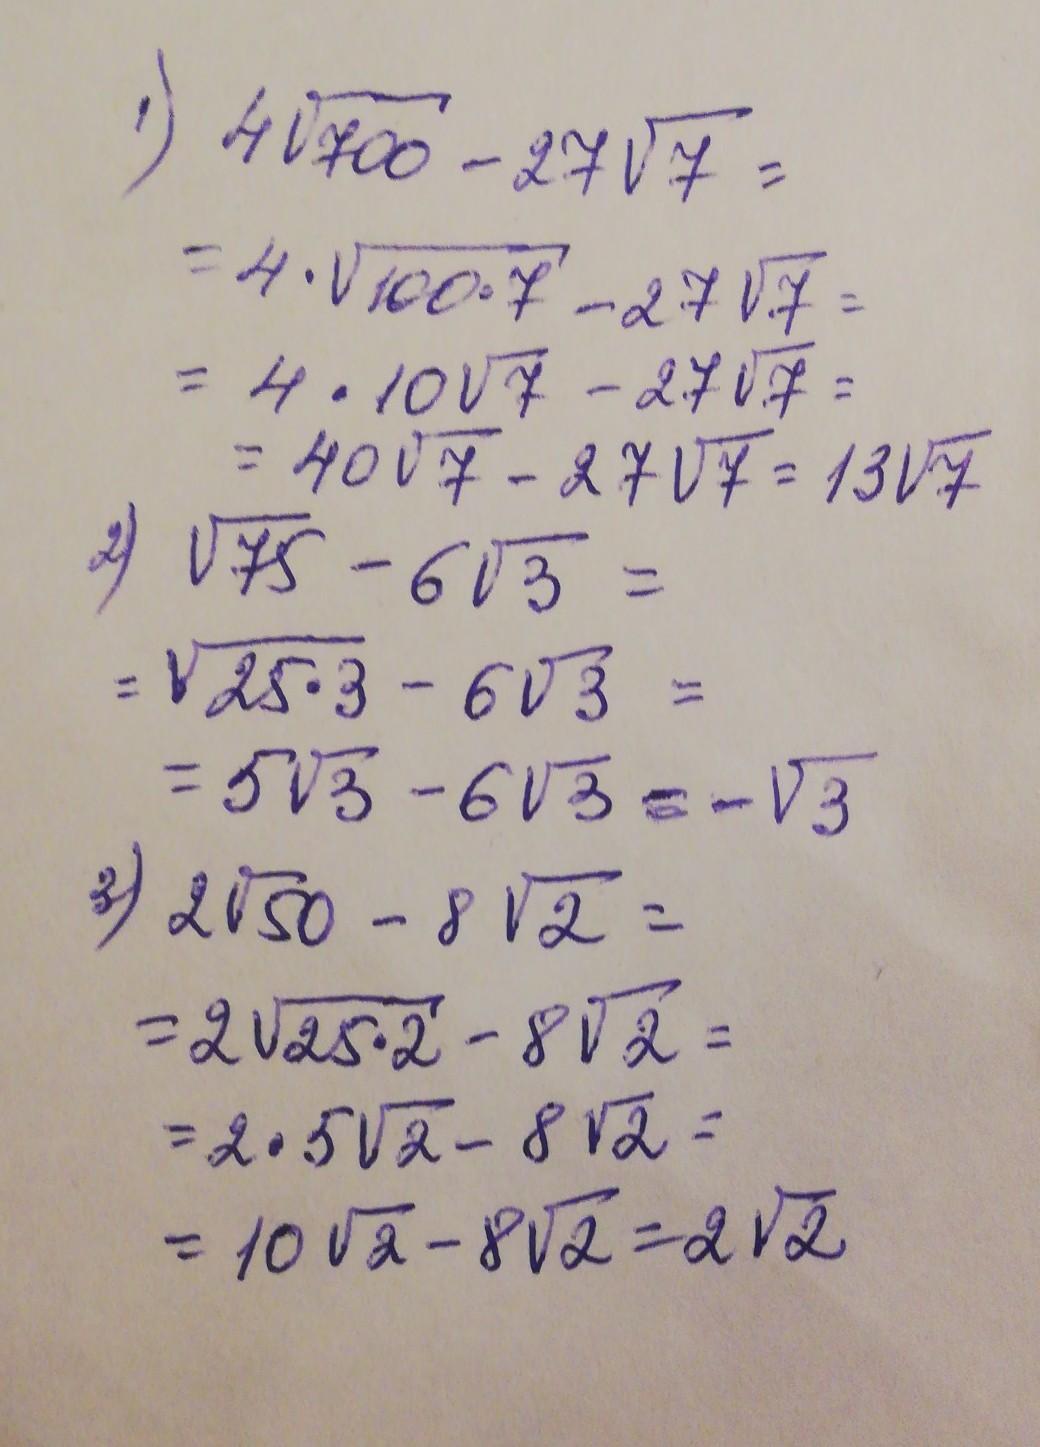 1) 4√700 - 27√7 =
= 4·√100·7 - 27√7 =
= 4·10√7 - 27√7 =
= 40√7 - 27√7 = 13√7
2) √75 - 6√3 =
= √25·3 - 6√3 =
= 5√3 - 6√3 = -√3
3) 2√50 - 8√2 =
= 2√25·2 - 8√2 =
= 2·5√2 - 8√2 =
= 10√2 - 8√2 = 2√2